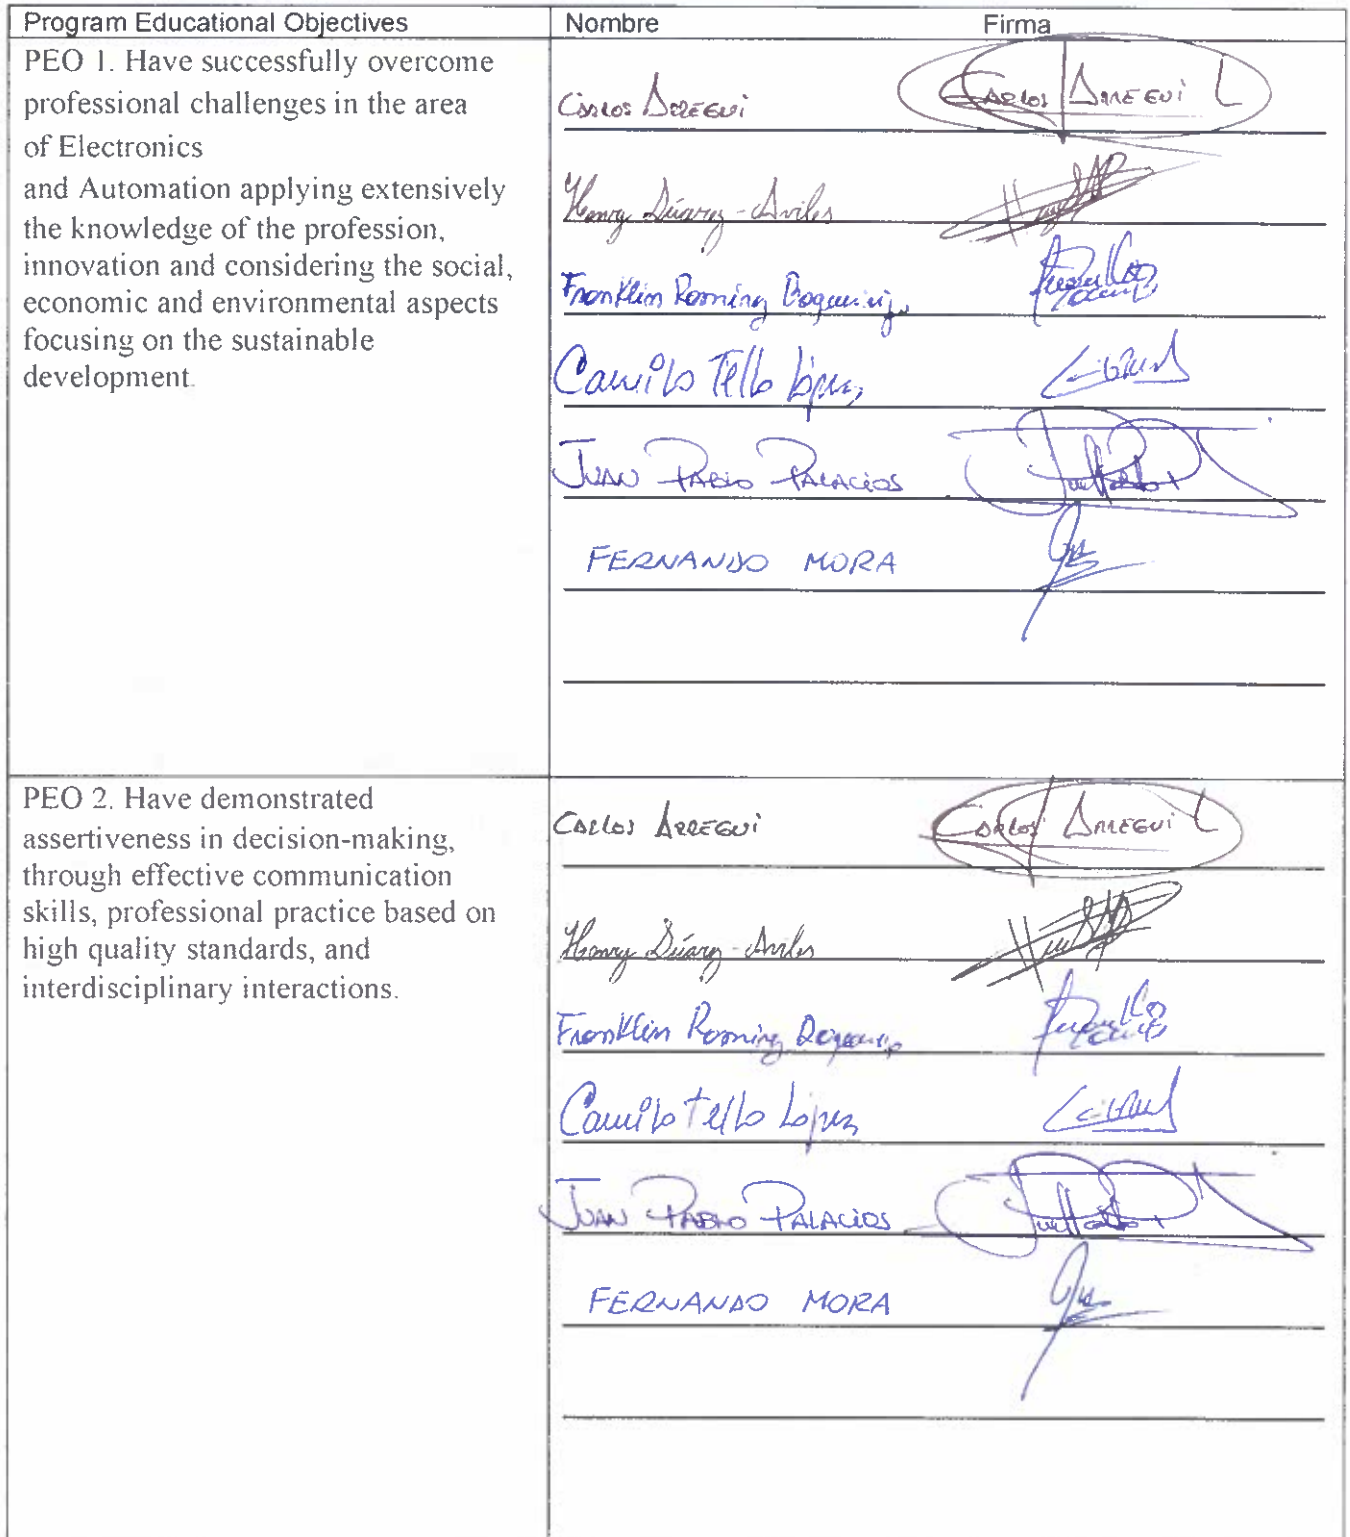 Program Educational Objectives Nombre Firma
PEO 1. Have successfully overcome
professional challenges in the area
of Electronics
and Automation applying extensively
the knowledge of the profession,
innovation and considering the social,
economic and environmental aspects
focusing on the sustainable
development.
Carlos Arregui Carlos Arregui L
Henry Súarez-Aviles
Franklin
Camilo Tello López
JUAN PABLO PALACIOS
FERNANDO MORA
PEO 2. Have demonstrated
assertiveness in decision-making,
through effective communication
skills, professional practice based on
high quality standards, and
interdisciplinary interactions.
Carlos Arregui Carlos Arregui L
Henry Súarez-Aviles
Franklin
Camilo Tello López
JUAN PABLO PALACIOS
FERNANDO MORA